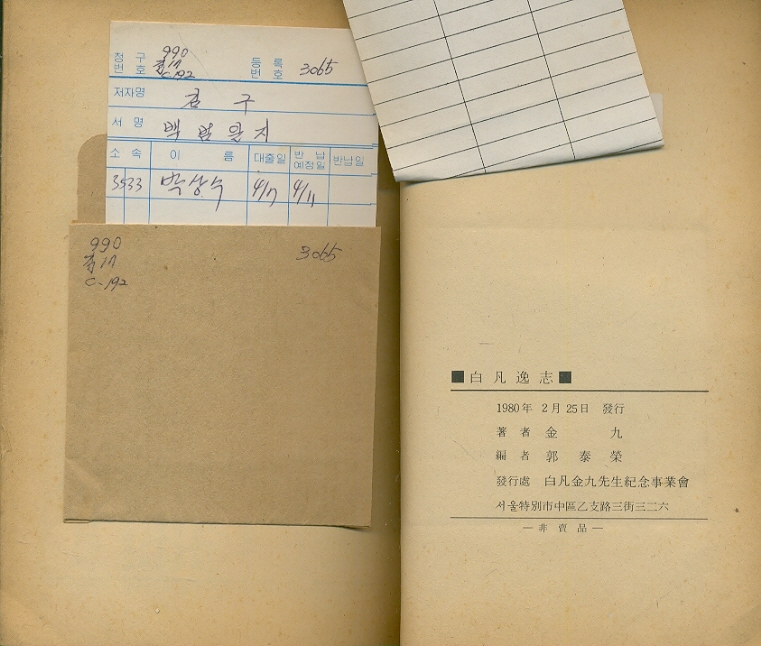 청구번호 990 김17 C-192 등록번호 3065
저자명 김 구
서 명 백범일지
소 속 이 름 대출일 반납예정일 반납일
3533 박상수 4/7 4/11
990
김17
C-192
3065
■白凡逸志■
1980年 2月 25日 發行
著者 金 九
編者 郭泰榮
發行處 白凡金九先生紀念事業會
서울特別市中區乙支路三街三二六
—非賣品—